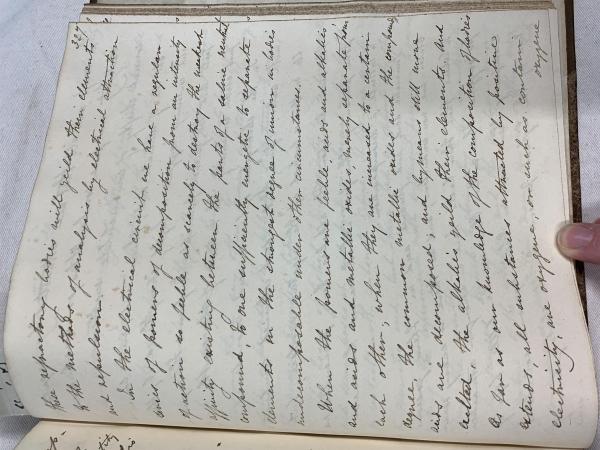 327
these refractory bodies will yield their elements
to the methods of analysis by electrical attraction
and repulsion
in the electrical circuit we have a regular
series of powers of decomposition from an intensity
of action so feeble as scarcely to destroy the weakest
affinity existing between the parts of a saline neutral
compound, to one sufficiently energetic to separate
elements in the strongest degree of union in bodies
undecomposable under other circumstances.
When the powers are feeble, acids and alkalies
and acids and metallic oxides merely separate from
each other; when they are increased to a certain
degree, the common metallic oxides and the compound
acids are decomposed and by means still more
exalted, the alkalies yield their elements, and
as far as our knowledge of the composition of bodies
extends, all substances attracted by positive
electricity, are oxygene, or such as contain
oxygene